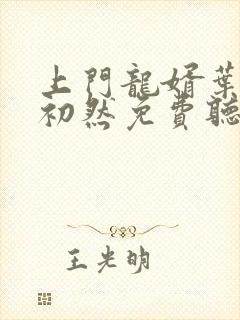 上門龍婿葉
初然免費聽
王光明